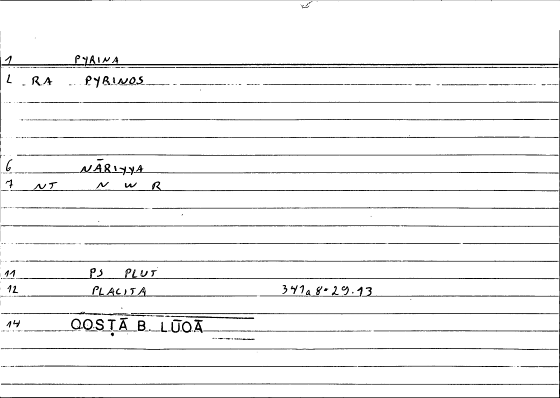 1 PYRINA
L RA PYRINOS
6 NĀRIYYA
7 NT N W R
11 PS PLUT
12 PLACITA 341a8·29.13
14 QOSṬĀ B. LŪQĀ